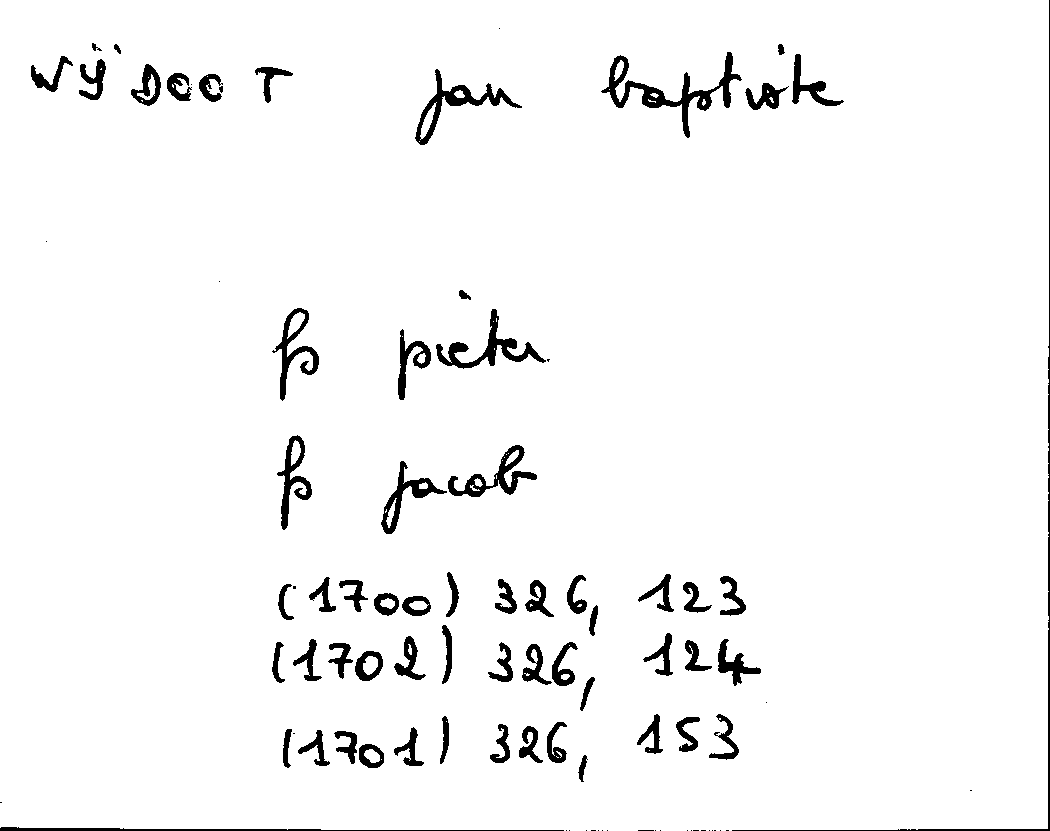 WŸDOOT jan baptiste
fs pieter
fs jacob
(1700) 326, 123
(1702) 326, 124
(1701) 326, 153